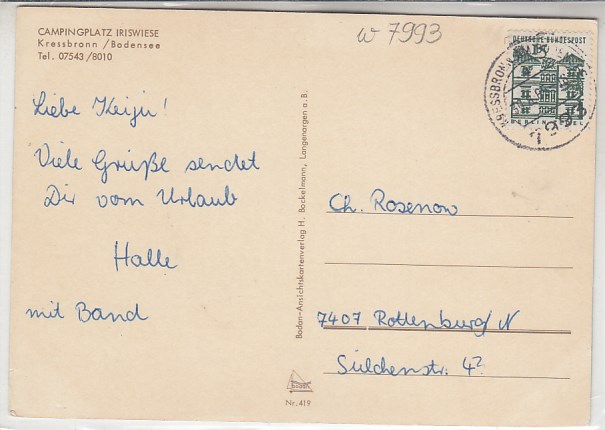 CAMPINGPLATZ IRISWIESE
Kressbronn /Bodensee
Tel. 07543/8010
w 7993
DEUTSCHE BUNDESPOST
BERLIN TEGEL
KRESSBRONN
Liebe
Viele Grüße sendet
Dir vom Urlaub
Halle
mit Band
Bodan-Ansichtskartenverlag H. Bockelmann, Langenargen a. B.
Ch. Rosenow
7407 Rottenburg/N
Sülchenstr. 42
Nr. 419